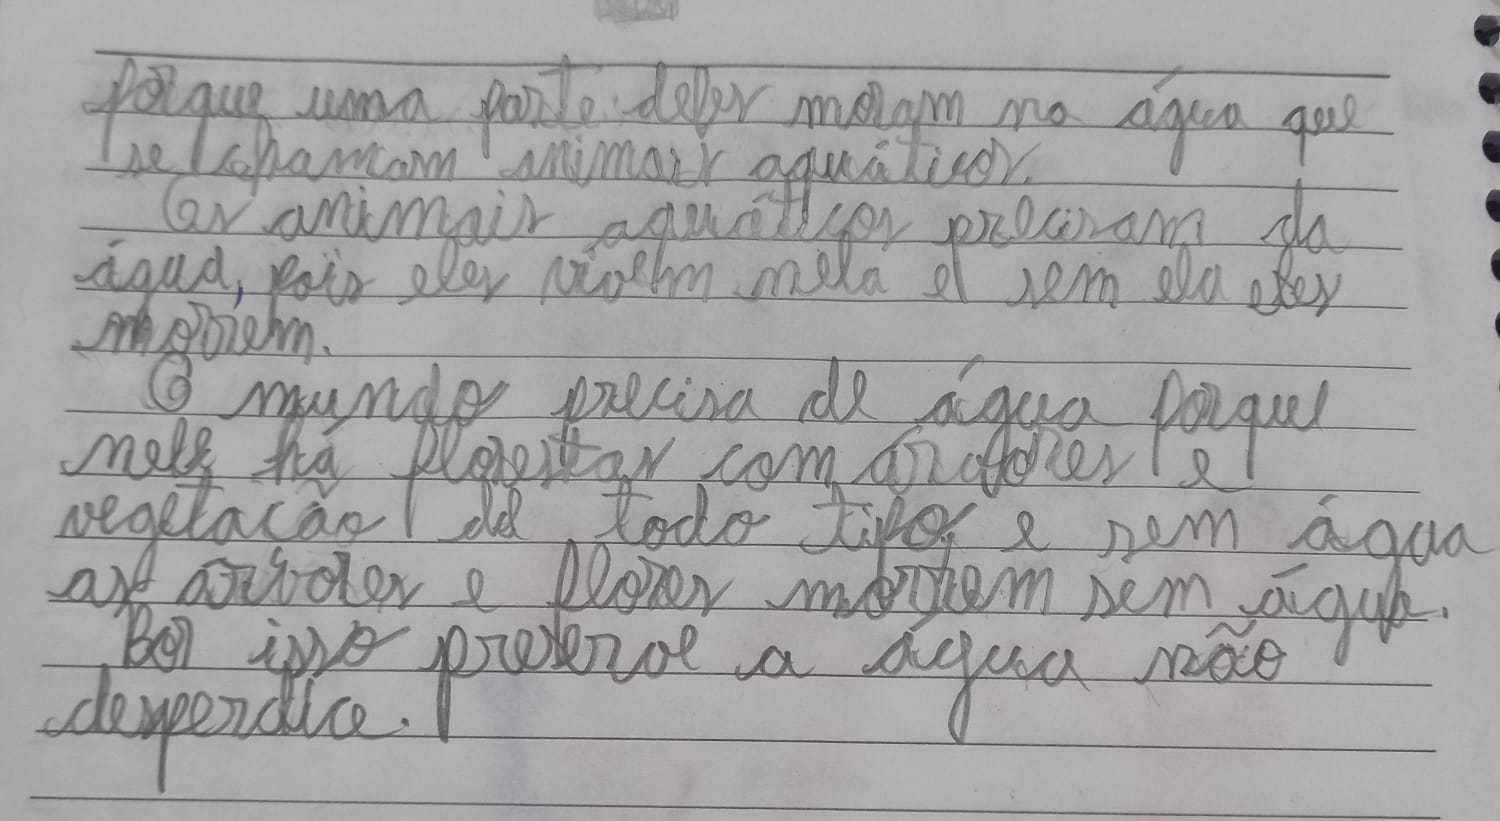 porque uma parte deles moram na água que
se chamam animais aquáticos.
Os animais aquáticos precisam da
água, pois eles vivem nela e sem ela eles
morrem.
O mundo precisa de água porque
nele há florestas com árvores e
vegetação de todo tipo, e sem água
as árvores e flores morrem sem água.
Por isso preserve a água não
desperdice.